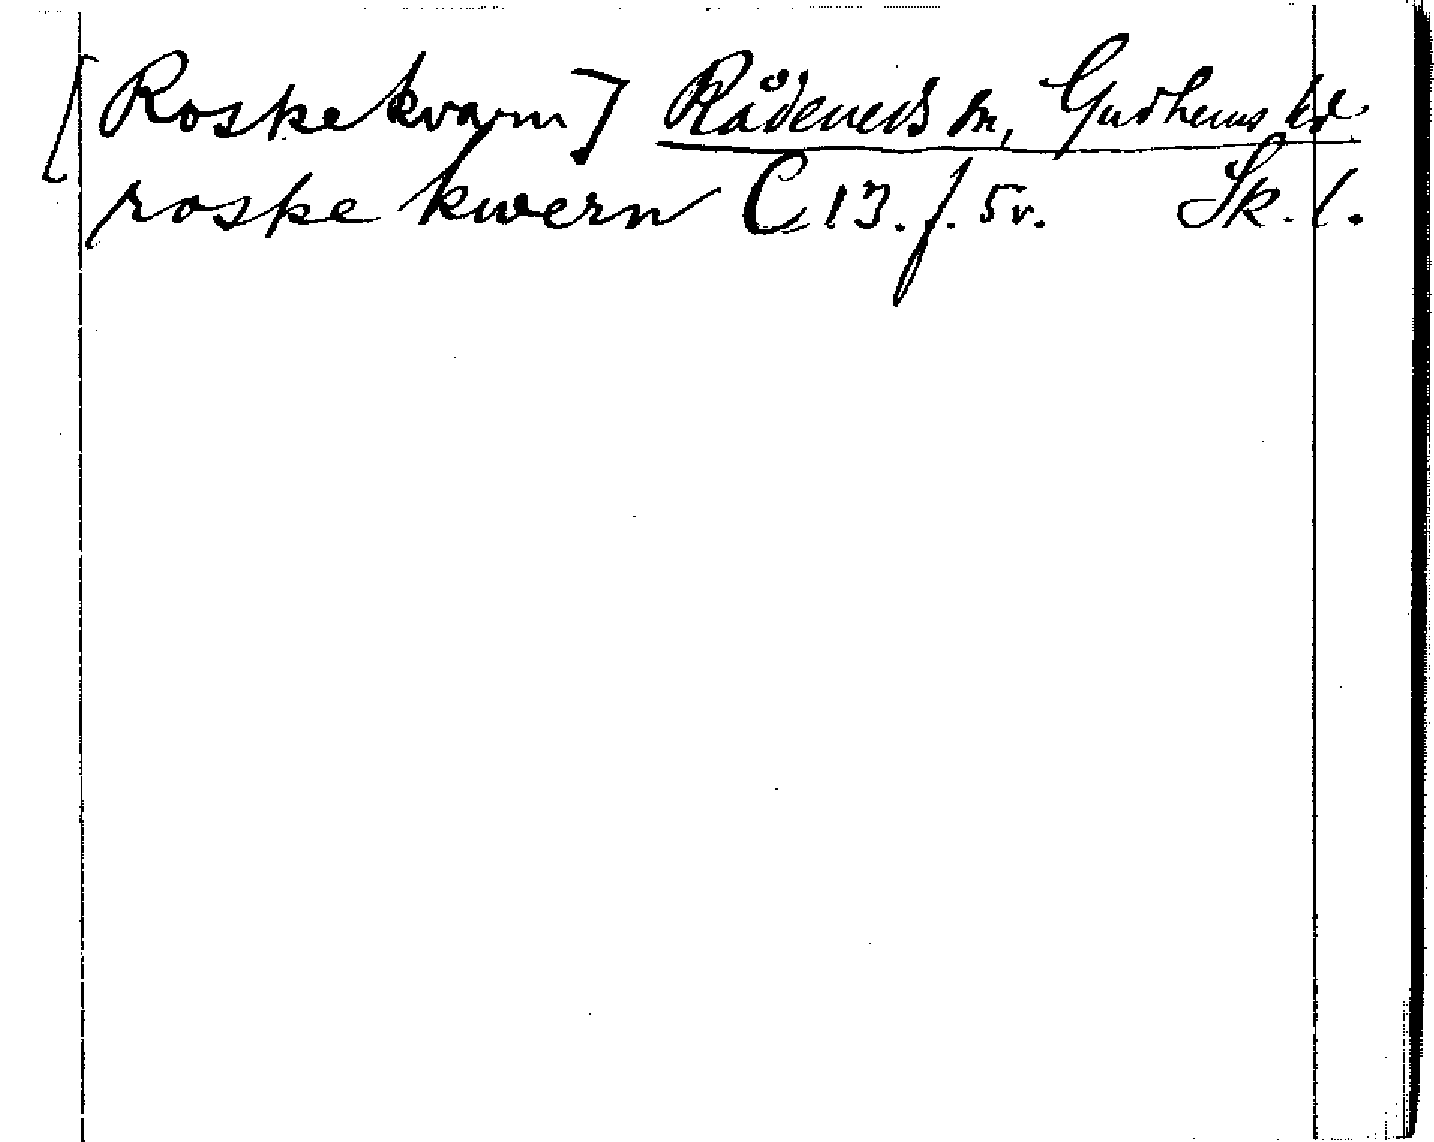 [Roskekvarn] Rådeneds sn, Gudhems hd
roske kwern C 13. f. 5v. Sk. l.